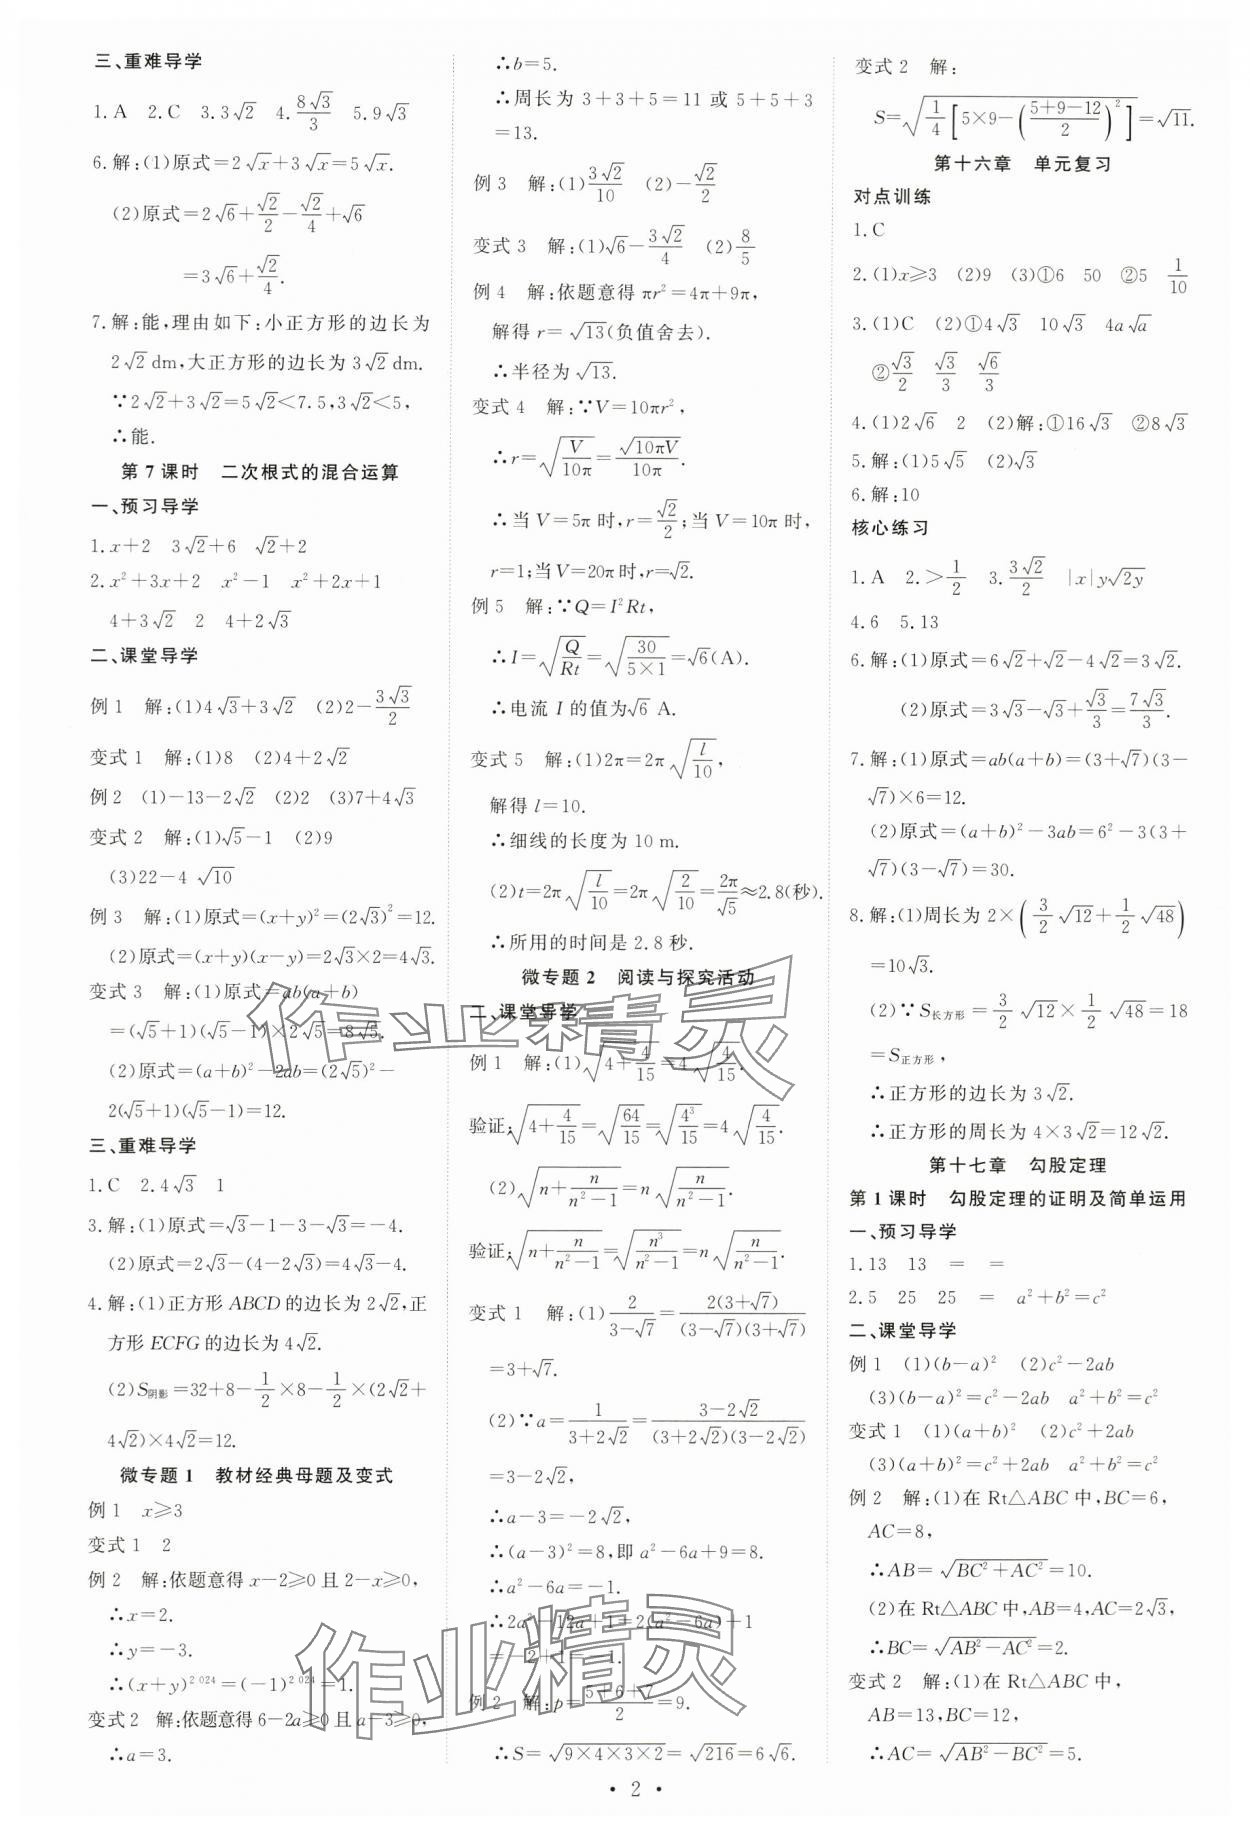 三、重难导学
1.A 2.C 3.3√2 4.8√3/3 5.9√3
6.解:(1)原式=2√x+3√x=5√x.
(2)原式=2√6+√2/2-√2/4+√6
=3√6+√2/4.
7.解:能,理由如下:小正方形的边长为
2√2 dm,大正方形的边长为 3√2 dm.
∵2√2+3√2=5√2<7.5,3√2<5,
∴能.
第 7 课时 二次根式的混合运算
一、预习导学
1.x+2 3√2+6 √2+2
2.x²+3x+2 x²-1 x²+2x+1
4+3√2 2 4+2√3
二、课堂导学
例 1 解:(1)4√3+3√2 (2)2-3√3/2
变式 1 解:(1)8 (2)4+2√2
例 2 (1)-13-2√2 (2)2 (3)7+4√3
变式 2 解:(1)√5-1 (2)9
(3)22-4√10
例 3 解:(1)原式=(x+y)²=(2√3)²=12.
(2)原式=(x+y)(x-y)=2√3×2=4√3.
变式 3 解:(1)原式=ab(a+b)
=(√5+1)(√5-1)×2√5=8√5.
(2)原式=(a+b)²-2ab=(2√5)²-
2(√5+1)(√5-1)=12.
三、重难导学
1.C 2.4√3 1
3.解:(1)原式=√3-1-3-√3=-4.
(2)原式=2√3-(4-2√3)=4√3-4.
4.解:(1)正方形 ABCD 的边长为 2√2,正
方形 ECFG 的边长为 4√2.
(2)S阴影=32+8-1/2×8-1/2×(2√2+
4√2)×4√2=12.
微专题 1 教材经典母题及变式
例 1 x≥3
变式 1 2
例 2 解:依题意得 x-2≥0 且 2-x≥0,
∴x=2.
∴y=-3.
∴(x+y)²⁰²⁴=(-1)²⁰²⁴=1.
变式 2 解:依题意得 6-2a≥0 且 a-3≥0,
∴a=3.
∴b=5.
∴周长为 3+3+5=11 或 5+5+3
=13.
例 3 解:(1)3√2/10 (2)-√2/2
变式 3 解:(1)√6-3√2/4 (2)8/5
例 4 解:依题意得 πr²=4π+9π,
解得 r=√13(负值舍去).
∴半径为√13.
变式 4 解:∵V=10πr²,
∴r=√(V/10π)=√(10πV)/10π.
∴当 V=5π 时,r=√2/2;当 V=10π 时,
r=1;当 V=20π 时,r=√2.
例 5 解:∵Q=I²Rt,
∴I=√(Q/Rt)=√(30/(5×1))=√6(A).
∴电流 I 的值为√6 A.
变式 5 解:(1)2π=2π√(l/10),
解得 l=10.
∴细线的长度为 10 m.
(2)t=2π√(l/10)=2π√(2/10)=2π/√5≈2.8(秒).
∴所用的时间是 2.8 秒.
微专题 2 阅读与探究活动
二、课堂导学
例 1 解:(1)√(4+4/15)=4√(4/15).
验证:√(4+4/15)=√(64/15)=√(4³/15)=4√(4/15).
(2)√(n+n/(n²-1))=n√(n/(n²-1)).
验证:√(n+n/(n²-1))=√(n³/(n²-1))=n√(n/(n²-1)).
变式 1 解:(1)2/(3-√7)=2(3+√7)/((3-√7)(3+√7))
=3+√7.
(2)∵a=1/(3+2√2)=(3-2√2)/((3+2√2)(3-2√2))
=3-2√2,
∴a-3=-2√2,
∴(a-3)²=8,即 a²-6a+9=8.
∴a²-6a=-1.
∴2a²-12a+1=2(a²-6a)+1
=-2+1=-1.
例 2 解:p=(5+6+7)/2=9.
∴S=√(9×4×3×2)=√216=6√6.
变式 2 解:
S=√(1/4[5×9-((5+9-12)/2)²])=√11.
第十六章 单元复习
对点训练
1.C
2.(1)x≥3 (2)9 (3)①6 50 ②5 1/10
3.(1)C (2)①4√3 10√3 4a√a
②√3/2 √3/3 √6/3
4.(1)2√6 2 (2)解:①16√3 ②8√3
5.解:(1)5√5 (2)√3
6.解:10
核心练习
1.A 2.>1/2 3.3√2/2 |x|y√2y
4.6 5.13
6.解:(1)原式=6√2+√2-4√2=3√2.
(2)原式=3√3-√3+√3/3=7√3/3.
7.解:(1)原式=ab(a+b)=(3+√7)(3-
√7)×6=12.
(2)原式=(a+b)²-3ab=6²-3(3+
√7)(3-√7)=30.
8.解:(1)周长为 2×(3/2√12+1/2√48)
=10√3.
(2)∵S长方形=3/2√12×1/2√48=18
=S正方形,
∴正方形的边长为 3√2.
∴正方形的周长为 4×3√2=12√2.
第十七章 勾股定理
第 1 课时 勾股定理的证明及简单运用
一、预习导学
1.13 13 = =
2.5 25 25 = a²+b²=c²
二、课堂导学
例 1 (1)(b-a)² (2)c²-2ab
(3)(b-a)²=c²-2ab a²+b²=c²
变式 1 (1)(a+b)² (2)c²+2ab
(3)(a+b)²=c²+2ab a²+b²=c²
例 2 解:(1)在 Rt△ABC 中,BC=6,
AC=8,
∴AB=√(BC²+AC²)=10.
(2)在 Rt△ABC 中,AB=4,AC=2√3,
∴BC=√(AB²-AC²)=2.
变式 2 解:(1)在 Rt△ABC 中,
AB=13,BC=12,
∴AC=√(AB²-BC²)=5.
• 2 •
作业精灵
作业精灵